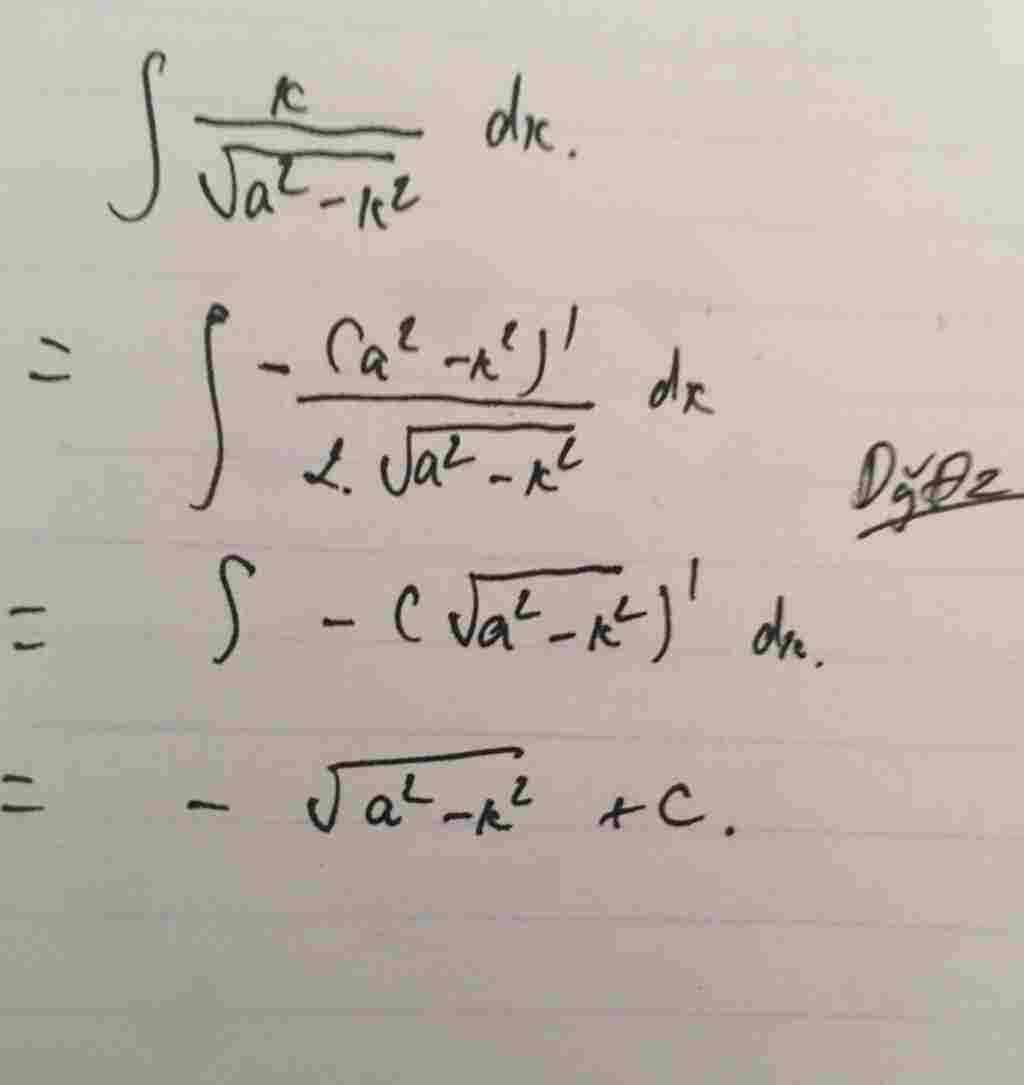 ∫ x / √(a² - x²) dx.
= ∫ - (a² - x²)' / 2. √(a² - x²) dx
= ∫ - (√(a² - x²))' dx.
= - √(a² - x²) + C.